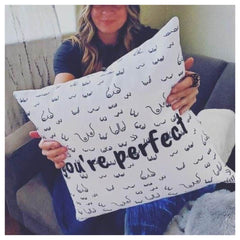 you're perfect